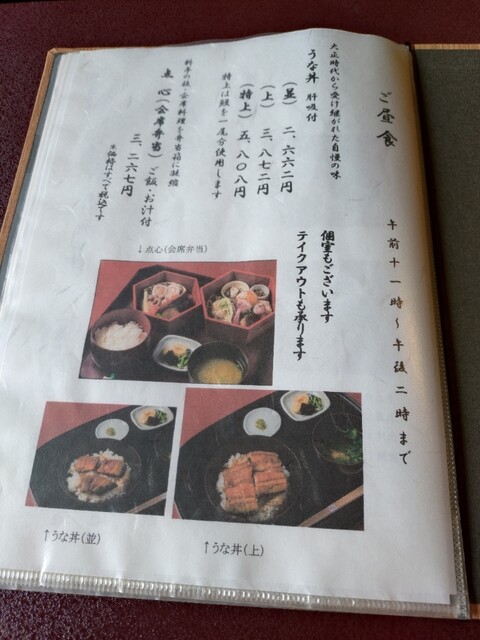 ご昼食
午前十一時～午後二時まで
大正時代から受け継がれた自慢の味
うな丼 肝吸付
(並) 二、六六二円
(上) 三、八七二円
(特上) 五、八〇八円
特上は鰻を一尾分使用します
料亭の粋・会席料理を弁当箱に凝縮
点心(会席弁当) ご飯・お汁付
三、二六七円
※価格はすべて税込です
個室もございます
テイクアウトも承ります
↓点心(会席弁当)
↑うな丼(並)
↑うな丼(上)